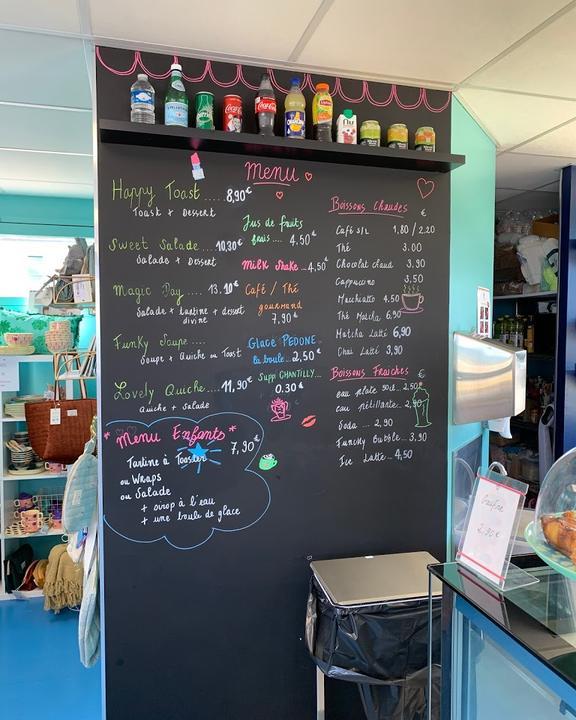 Menu
Happy Toast ..... 8,90€
Toast + Dessert
Sweet Salade .... 10,30€
Salade + Dessert
Magic Day .... 13.10€
Salade + tartine + dessert
divine
Funky Soupe....
Soupe + Quiche ou Toast
Lovely Quiche..... 11,90€
Quiche + Salade
* Menu Enfants *
7,90€
Tartine à Toaster
ou Wraps
ou Salade
+ sirop à l'eau
+ une boule de glace
Jus de fruits
frais .... 4,50€
Milk Shake..4,50€
Café / Thé
gourmand
7,90€
Glace PEDONE
la boule... 2,50€
Supp CHANTILLY...
0.30€
Boissons Chaudes
€
Café S/L 1.80 / 2.20
Thé 3.00
Chocolat chaud 3.90
Cappuccino 3.50
Macchiato 4.50
Thé Matcha 6,90
Matcha Latté 6,90
Chai Latté 3,90
Boissons Fraîches €
eau plate 50cl.. 2,50
eau pétillante.. 2,90
Soda ... 2,90
Funcky Bubble.. 3.90
Ice Latté.. 4,50
Coca-Cola
Coca-Cola
ORANGINA
Lipton
Gaufre
2,90€